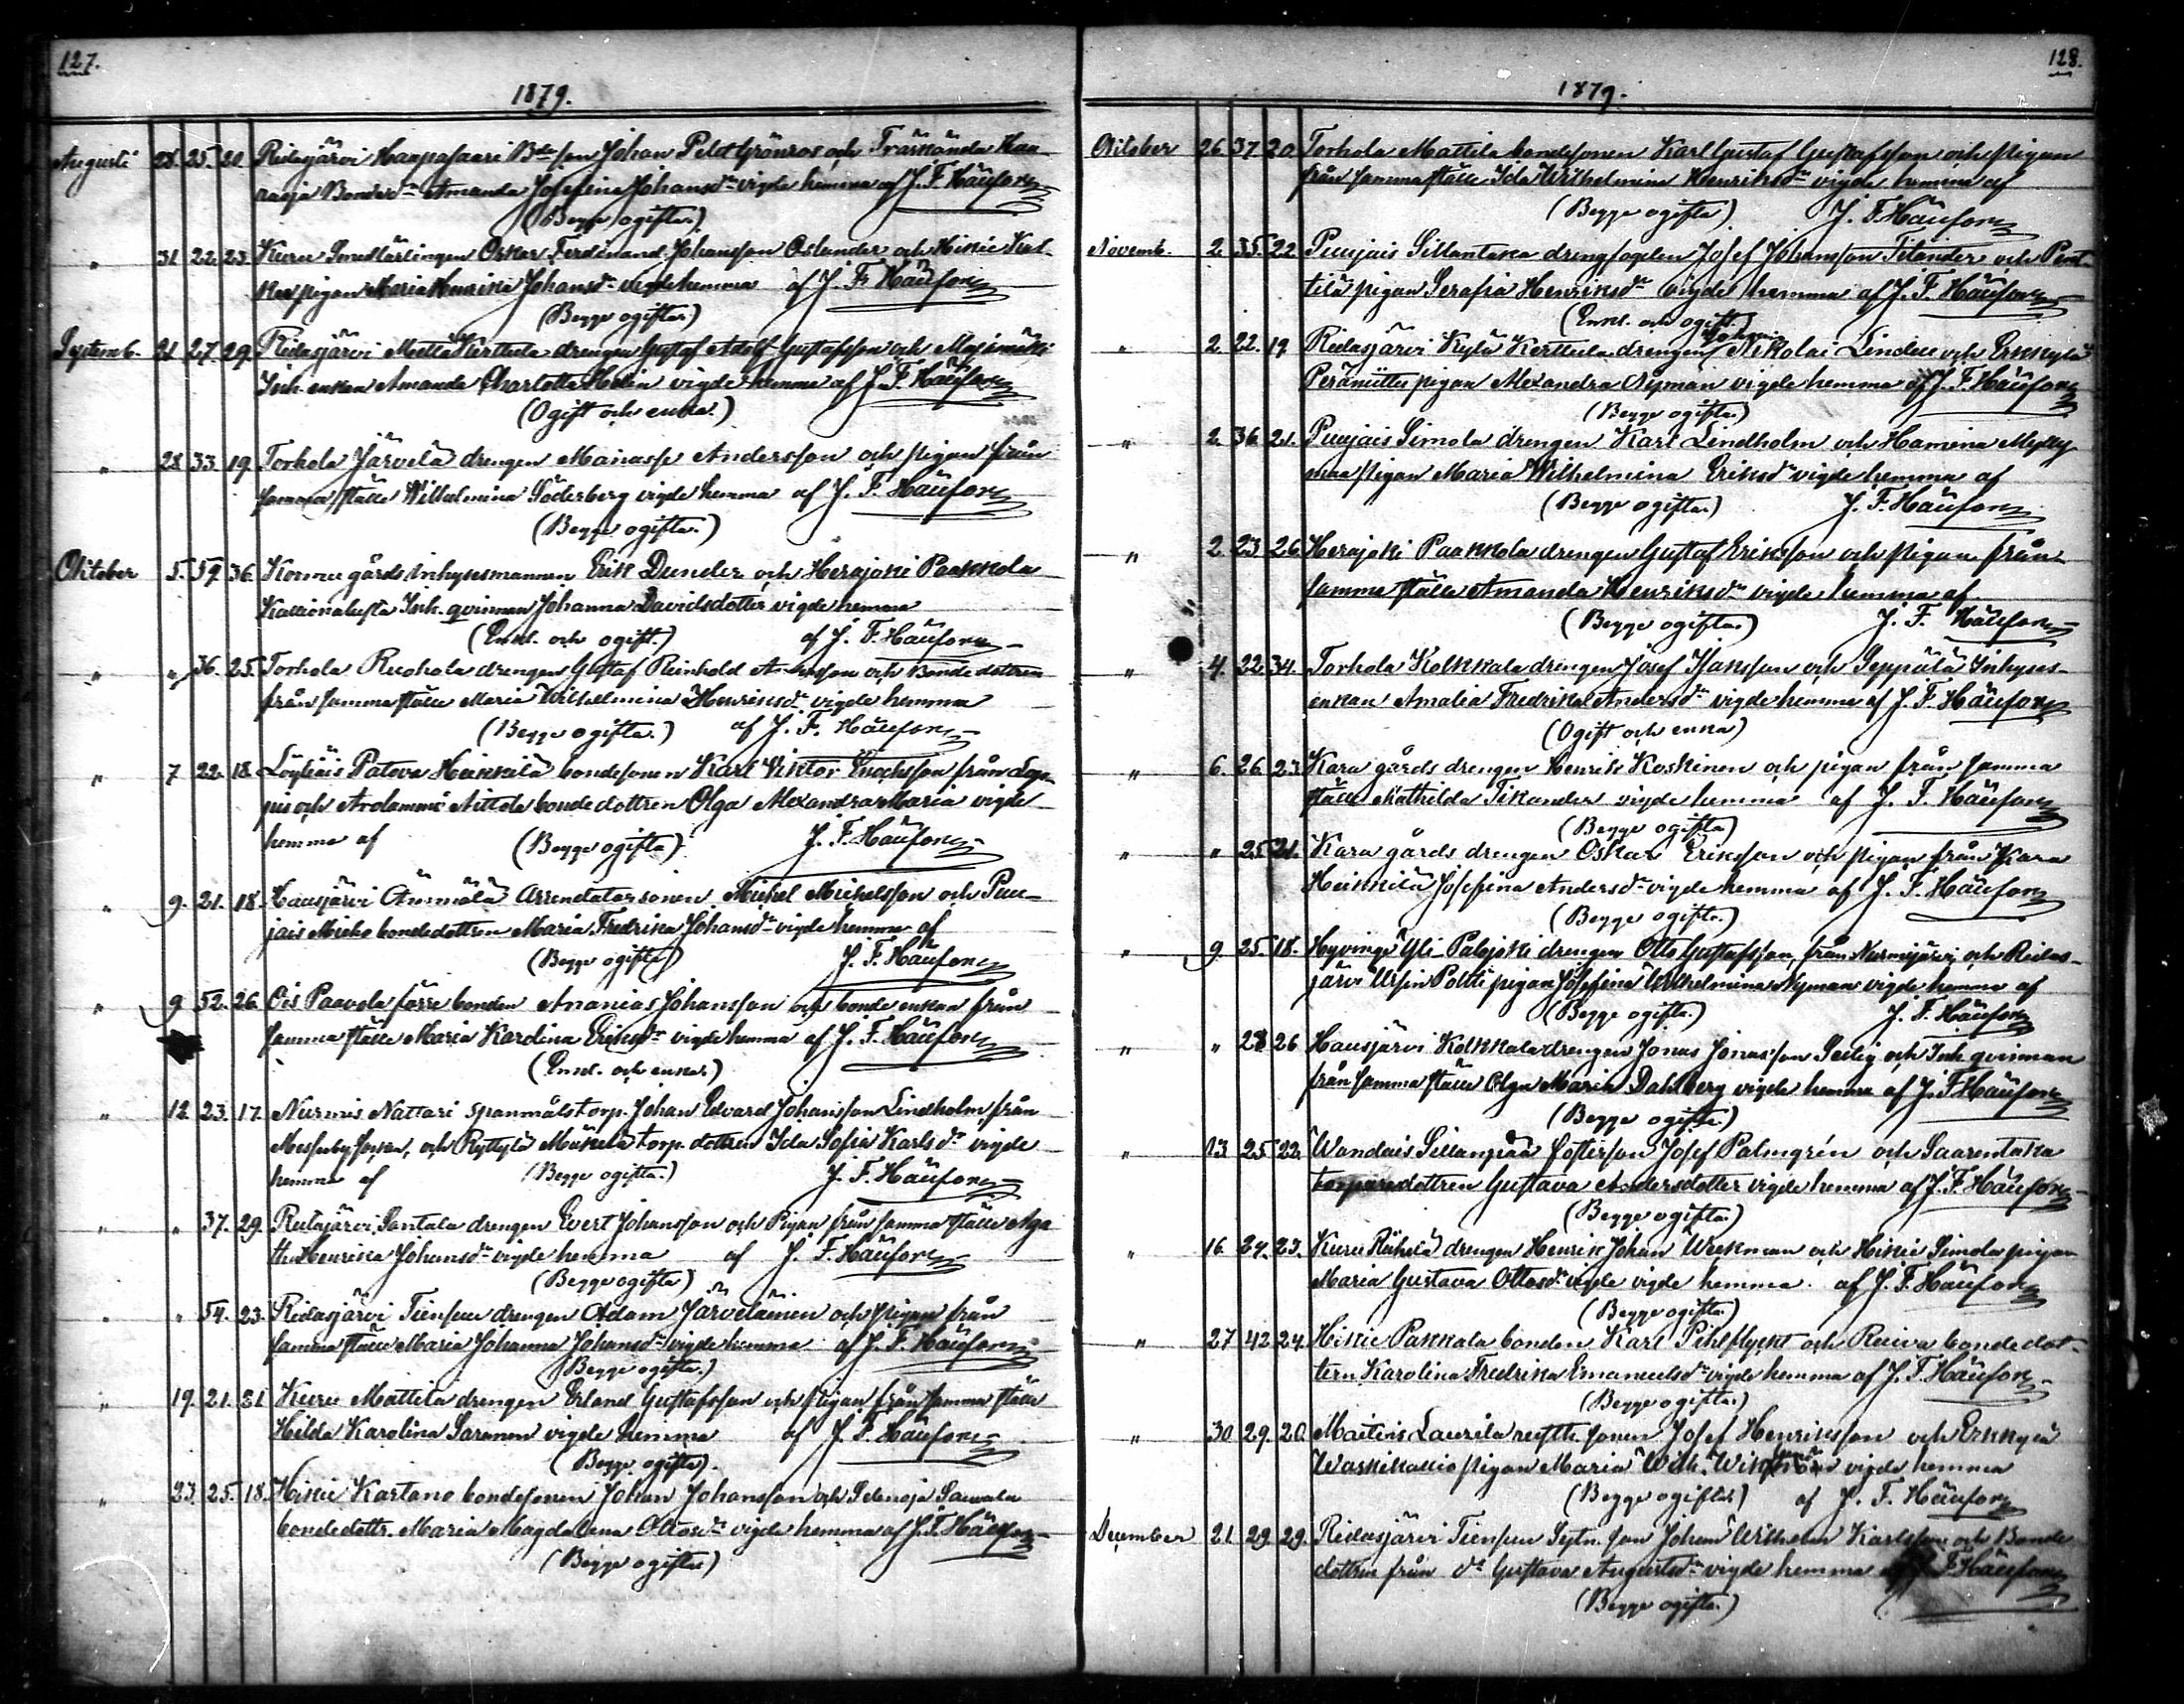 127.
1879.
Augusti 28. 25. 20. Ridasjärvi Haapasaari Bdeson Johan Grönroos och Träskända
Bondesdr Amanda Josefina Johansdr vigde hemma af J. F. Häufors
(Begge ogifta.)
" 31 22. 23. Kuru Smedlärlingen Oskar Ferdinand Johansson Oslander och Hikiä
pigan Maria Henrika Johansdr vigde hemma af J. F. Häufors
(Begge ogifta.)
Septemb. 21 27. 29. Ridasjärvi Kerttula drengen Gustaf Adolf Gustafsson och
Inh. enkan Amanda Charlotta Helin vigde hemma af J. F. Häufors
(Ogift och enka.)
" 28. 33. 19. Torhola Järvelä drengen Manasse Andersson och pigan från
samma ställe Wilhelmina Söderberg vigde hemma af J. F. Häufors
(Begge ogifta.)
Oktober 5. 59. 36. gårds inhysesmannen Erik Dunder och Herajoki Paakkola
Inh. qvinnan Johanna Davidsdotter vigde hemma
(Enkl. och ogift.) af J. F. Häufors
" " 36. 25. Torhola Ruohola drengen Gustaf Reinhold och Bonde dottren
från samma ställe Maria Wilhelmina Henriksdr vigde hemma
(Begge ogifta.) af J. F. Häufors
" 7 22. 18. Heikkilä bondesonen Karl Viktor Enochsson från Lop-
pis och bonde dottren Olga Alexandra Maria vigde
hemma af (Begge ogifta) J. F. Häufors
" 9. 21. 18. Hausjärvi Arrendatorsonen Mickel Mickelsson och Puu-
jais Mikko bondedottren Maria Fredrika Johansdr vigde hemma af
(Begge ogifta) J. F. Häufors
" 9 52. 26. Ois Paavola förre bonden Ananias Johansson och bonde enkan från
samma ställe Maria Karolina Eriksdr vigde hemma af J. F. Häufors
(Enkl. och enka.)
" 12 23. 17. Nurmis Nattari spanmålstorp. Johan Edvard Johansson Lindholm från
och Ryttylä Mäkelä torp. dottren Ida Sofia Karlsdr vigde
hemma af (Begge ogifta.) J. F. Häufors
" " 37. 29. Ridasjärvi Santala drengen Evert Johansson och Pigan från samma ställe Aga
tha Henrika Johansdr vigde hemma af J. F. Häufors
(Begge ogifta)
" " 54. 23. Ridasjärvi Tiensuu drengen Adam Järveläinen och pigan från
samma ställe Maria Johanna Johansdr vigde hemma af J. F. Häufors
(Begge ogifta.)
" 19. 21. 21 Kuru Mattila drengen Erland Gustafsson och pigan från samma ställe
Hilda Karolina Saranen vigde hemma af J. F. Häufors
(Begge ogifta).
" 23. 25. 18. Hikiä Kartano bondesonen Johan Johansson och Selänoja
bondedottr. Maria Magdalena Ottosdr vigde hemma af J. F. Häufors
(Begge ogifta)
128.
1879.
Oktober 26. 37. 20 Torhola Mattila bondesonen Karl Gustaf Gustafsson och pigan
från samma ställe Ida Wilhelmina Henriksdr vigde hemma af
(Begge ogifta) J. F. Häufors
Novemb. 2. 35. 22. Puujais Sillantaka drengfogden Josef Johansson Titander och Pent-
tilä pigan Serafia Henriksdr vigde hemma af J. F. Häufors
(Enkl. och ogift.)
" 2. 22. 19 Ridasjärvi Kylä Kerttula drengen Nikolai Linden och Erkkylä
pigan Alexandra Nyman vigde hemma af J. F. Häufors
(Begge ogifta)
" 2. 36. 21. Puujais Simola drengen Karl Lindholm och Hamina
pigan Maria Wilhelmina Eriksdr vigde hemma af
(Begge ogifta.) J. F. Häufors
" 2. 23 26. Herajoki Paakkola drengen Gustaf Eriksson och pigan från
samma ställe Amanda Henriksdr vigde hemma af
(Begge ogifta) J. F. Häufors
" 4. 22. 34. Torhola Kolkkala drengen Josef Isaksson och Seppälä Inhyses-
enkan Amalia Fredrika Andersdr vigde hemma af J. F. Häufors
(Ogift och enka)
" 6. 26. 23. Kara gårds drengen Henrik Koskinen och pigan från samma
ställe Mathilda Tikander vigde hemma af J. F. Häufors
(Begge ogifta)
" " 25 21. Kara gårds drengen Oskar Eriksson och pigan från Kara
Heikkilä Josefina Andersdr vigde hemma af J. F. Häufors
(Begge ogifta.)
" 9. 25. 18. Hyvinge Yli Palojoki drengen Otto Gustafsson, från Nurmijärvi och Ridas-
järvi pigan Josefina Wilhelmina Nyman vigde hemma af
(Begge ogifta.) J. F. Häufors
" " 28 26 Hausjärvi Kolkkala drengen Jonas Jonasson Selig och Inh. qvinnan
från samma ställe Olga Maria Dahlberg vigde hemma af J. F. Häufors
(Begge ogifta.)
" 13. 25 22. Sillanpää fosterson Josef Palmgrén och Saarentaka
torparedottren Gustava Andersdotter vigde hemma af J. F. Häufors
(Begge ogifta.)
" 16. 24. 23. Kuru drengen Henrik Johan och Hikiä Simola pigan
Maria Gustava Ottosdr vigde vigde hemma. af J. F. Häufors
(Begge ogifta.)
" 27 42. 24. Hikiä Pakkala bonden Karl och bonde dot-
tern Karolina Fredrika Emanuelsdr vigde hemma af J. F. Häufors
(Begge ogifta.)
" 30 29. 20. Laurila rustth. sonen Josef Henriksson och Erkkylä
Waskikallio pigan Maria Wilh. vigde hemma
(Begge ogifta.) af J. F. Häufors
December 21. 29. 29. Ridasjärvi Tiensuu son Johan Wilhelm Karlsson och Bonde
dottren från do Gustava Augustsdr vigde hemma af J. F. Häufors
(Begge ogifta.)